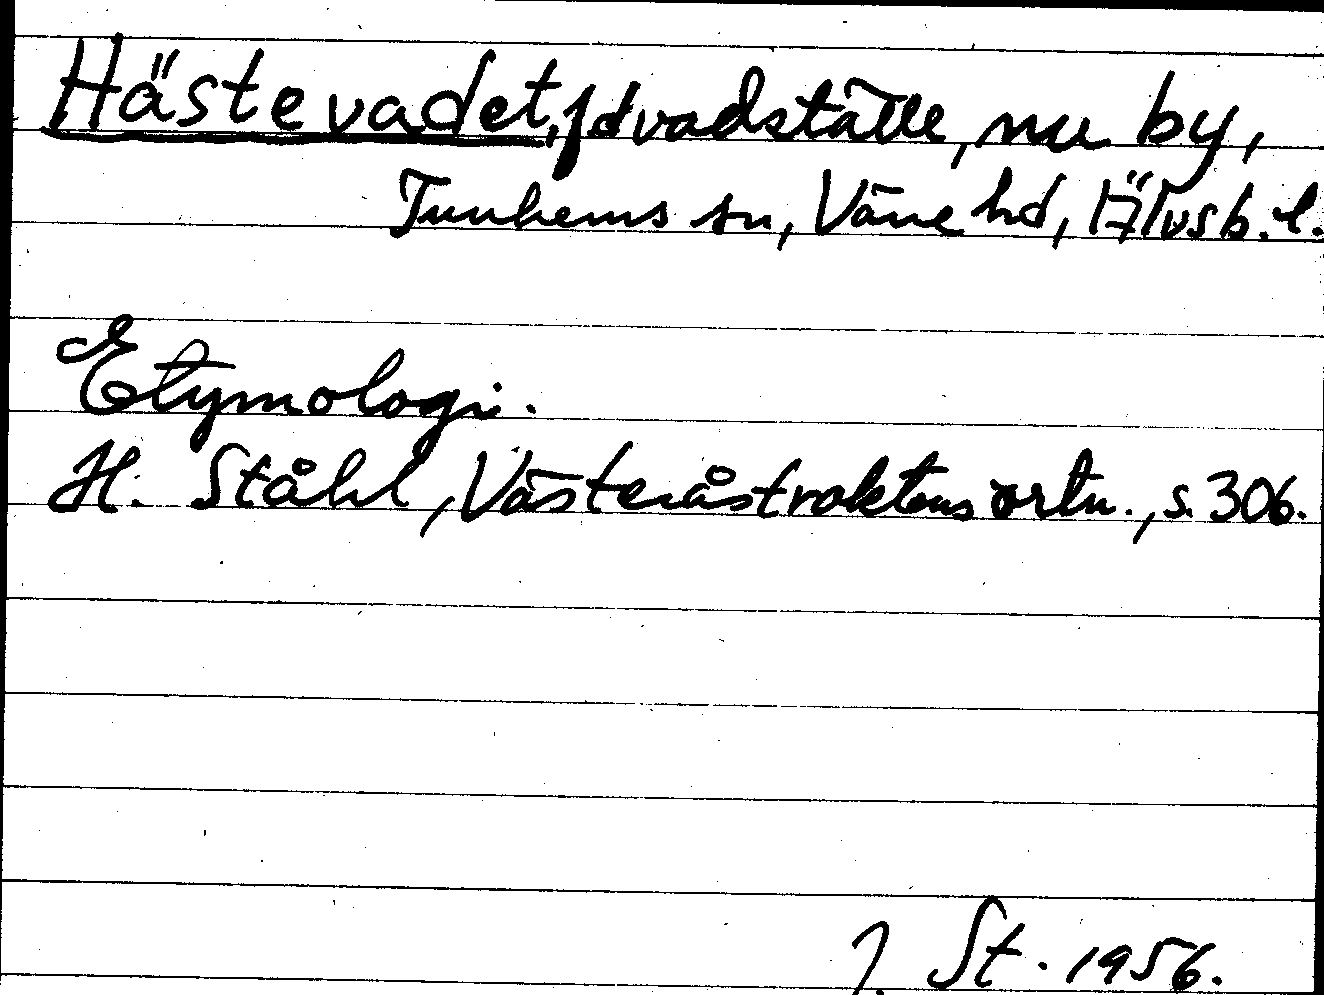 Hästevadet, fd vadställe, nu by,
Tunhems sn, Väne hd, Älvsb. l.
Etymologi.
H. Ståhl, Västeråstraktens ortn., s. 306.
J. St. 1956.